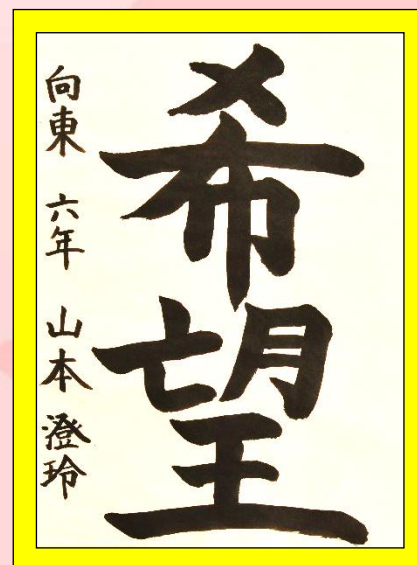 希望
向東 六年 山本 澄玲